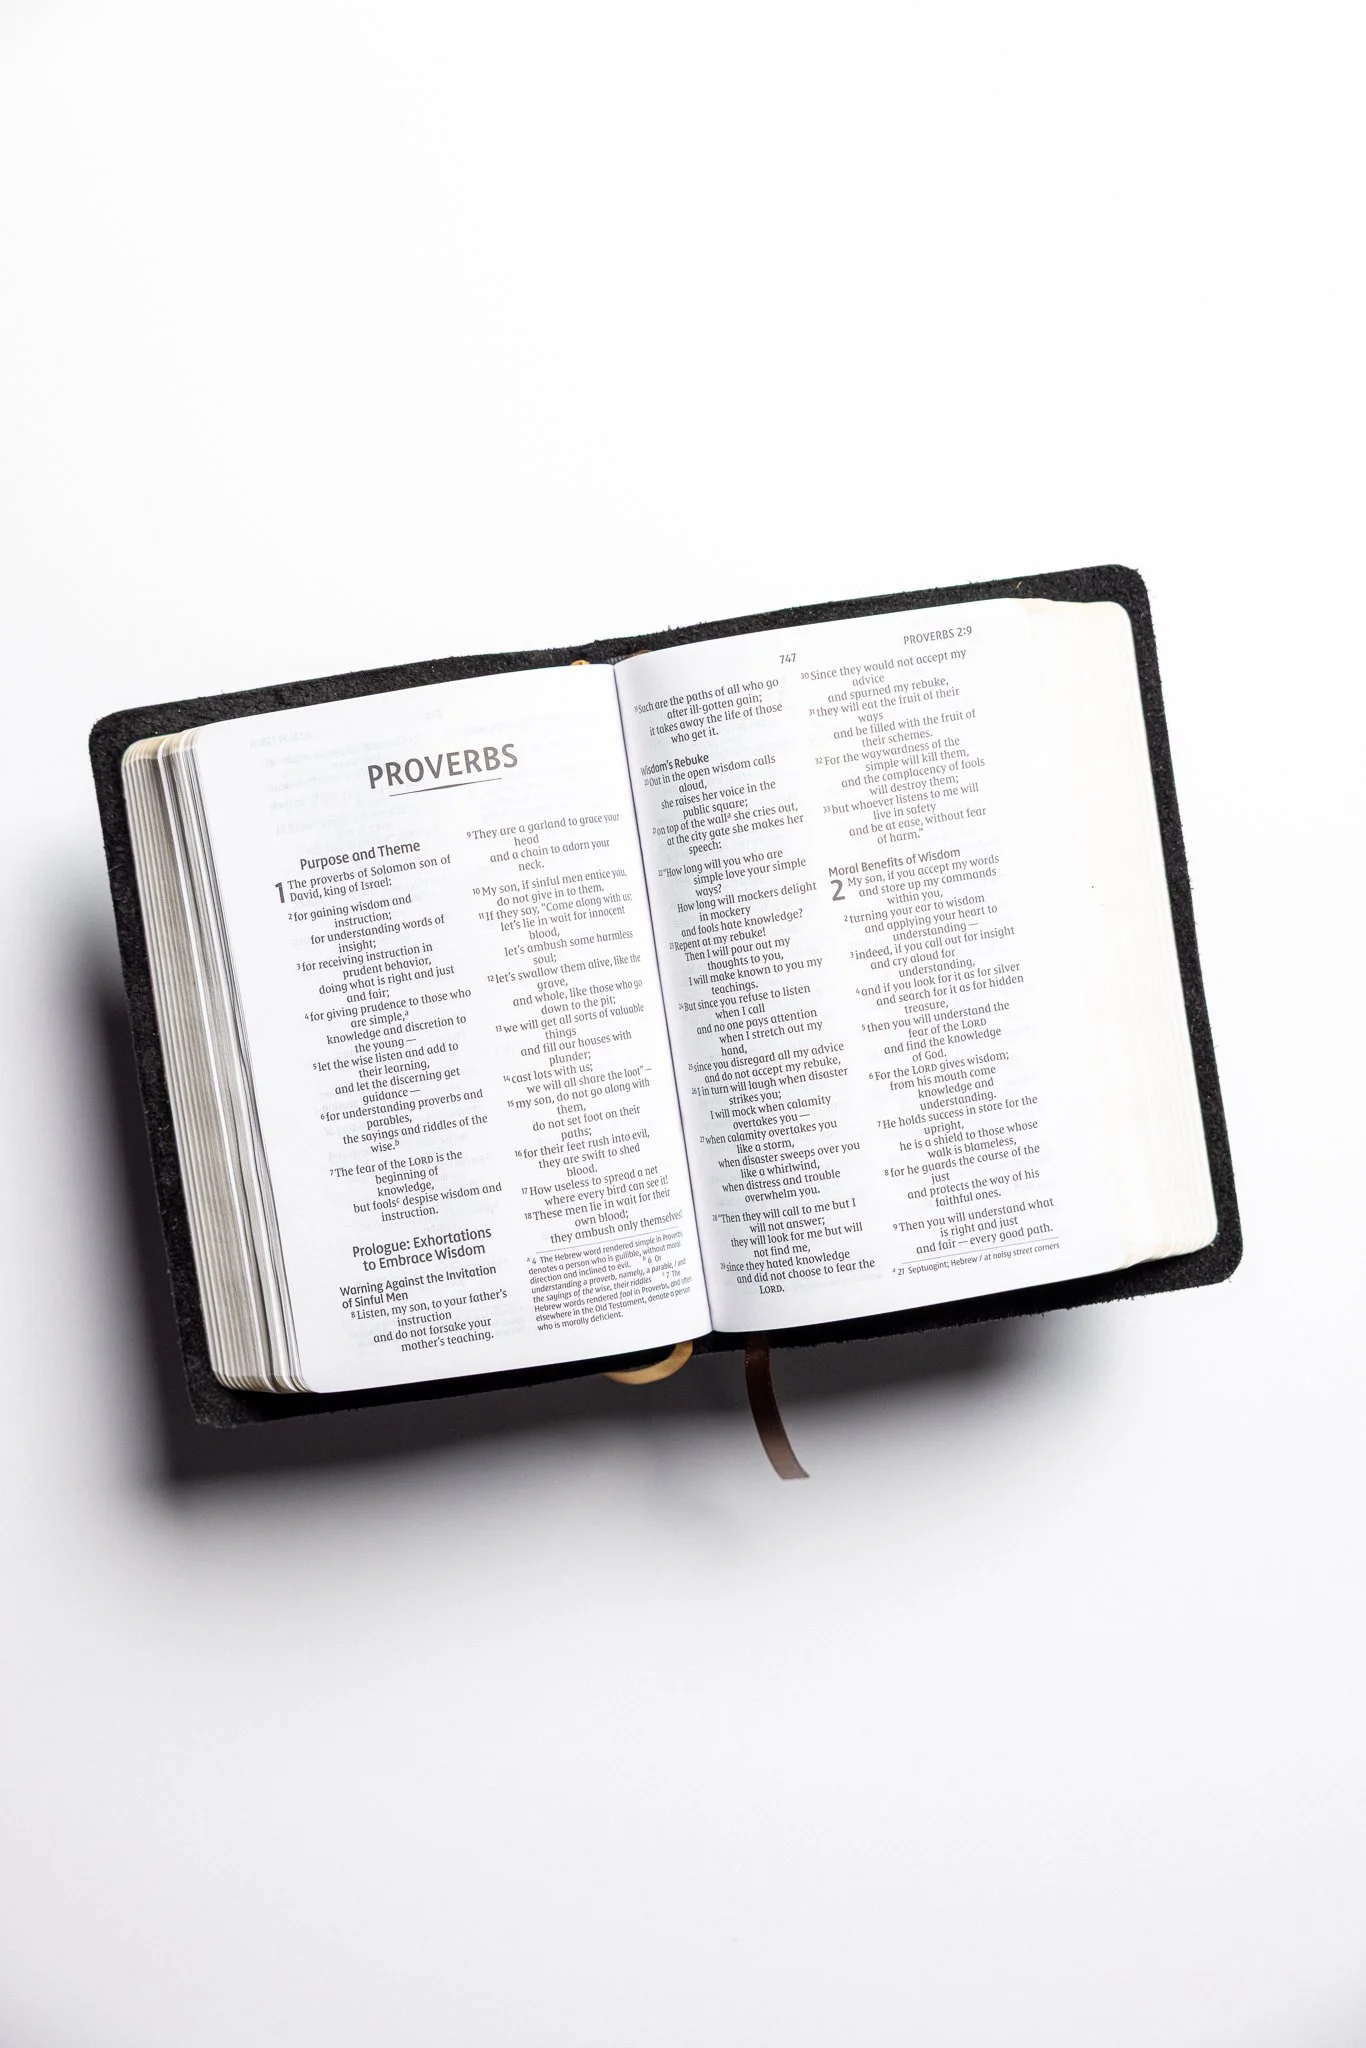 PROVERBS
Purpose and Theme
1 The proverbs of Solomon son of
David, king of Israel:
2 for gaining wisdom and
instruction;
for understanding words of
insight;
3 for receiving instruction in
prudent behavior,
doing what is right and just
and fair;
4 for giving prudence to those who
are simple,a
knowledge and discretion to
the young—
5 let the wise listen and add to
their learning,
and let the discerning get
guidance—
6 for understanding proverbs and
parables,
the sayings and riddles of the
wise.b
7 The fear of the LORD is the
beginning of
knowledge,
but foolsc despise wisdom and
instruction.
Prologue: Exhortations
to Embrace Wisdom
Warning Against the Invitation
of Sinful Men
8 Listen, my son, to your father's
instruction
and do not forsake your
mother's teaching.
9 They are a garland to grace your
head
and a chain to adorn your
neck.
10 My son, if sinful men entice you,
do not give in to them.
11 If they say, “Come along with us;
let's lie in wait for innocent
blood,
let's ambush some harmless
soul;
12 let's swallow them alive, like the
grave,
and whole, like those who go
down to the pit;
13 we will get all sorts of valuable
things
and fill our houses with
plunder;
14 cast lots with us;
we will all share the loot”—
15 my son, do not go along with
them,
do not set foot on their
paths;
16 for their feet rush into evil,
they are swift to shed
blood.
17 How useless to spread a net
where every bird can see it!
18 These men lie in wait for their
own blood;
they ambush only themselves!
a 4 The Hebrew word rendered simple in Proverbs
denotes a person who is gullible, without moral
direction and inclined to evil. b 6 Or
understanding a proverb, namely, a parable, / and
the sayings of the wise, their riddles c 7 The
Hebrew words rendered fool in Proverbs, and often
elsewhere in the Old Testament, denote a person
who is morally deficient.
747
PROVERBS 2:9
19 Such are the paths of all who go
after ill-gotten gain;
it takes away the life of those
who get it.
Wisdom's Rebuke
20 Out in the open wisdom calls
aloud,
she raises her voice in the
public square;
21 on top of the walla she cries out,
at the city gate she makes her
speech:
22 “How long will you who are
simple love your simple
ways?
How long will mockers delight
in mockery
and fools hate knowledge?
23 Repent at my rebuke!
Then I will pour out my
thoughts to you,
I will make known to you my
teachings.
24 But since you refuse to listen
when I call
and no one pays attention
when I stretch out my
hand,
25 since you disregard all my advice
and do not accept my rebuke,
26 I in turn will laugh when disaster
strikes you;
I will mock when calamity
overtakes you—
27 when calamity overtakes you
like a storm,
when disaster sweeps over you
like a whirlwind,
when distress and trouble
overwhelm you.
28 “Then they will call to me but I
will not answer;
they will look for me but will
not find me,
29 since they hated knowledge
and did not choose to fear the
LORD.
30 Since they would not accept my
advice
and spurned my rebuke,
31 they will eat the fruit of their
ways
and be filled with the fruit of
their schemes.
32 For the waywardness of the
simple will kill them,
and the complacency of fools
will destroy them;
33 but whoever listens to me will
live in safety
and be at ease, without fear
of harm.”
Moral Benefits of Wisdom
2 My son, if you accept my words
and store up my commands
within you,
2 turning your ear to wisdom
and applying your heart to
understanding—
3 indeed, if you call out for insight
and cry aloud for
understanding,
4 and if you look for it as for silver
and search for it as for hidden
treasure,
5 then you will understand the
fear of the LORD
and find the knowledge
of God.
6 For the LORD gives wisdom;
from his mouth come
knowledge and
understanding.
7 He holds success in store for the
upright,
he is a shield to those whose
walk is blameless,
8 for he guards the course of the
just
and protects the way of his
faithful ones.
9 Then you will understand what
is right and just
and fair—every good path.
a 21 Septuagint; Hebrew / at noisy street corners